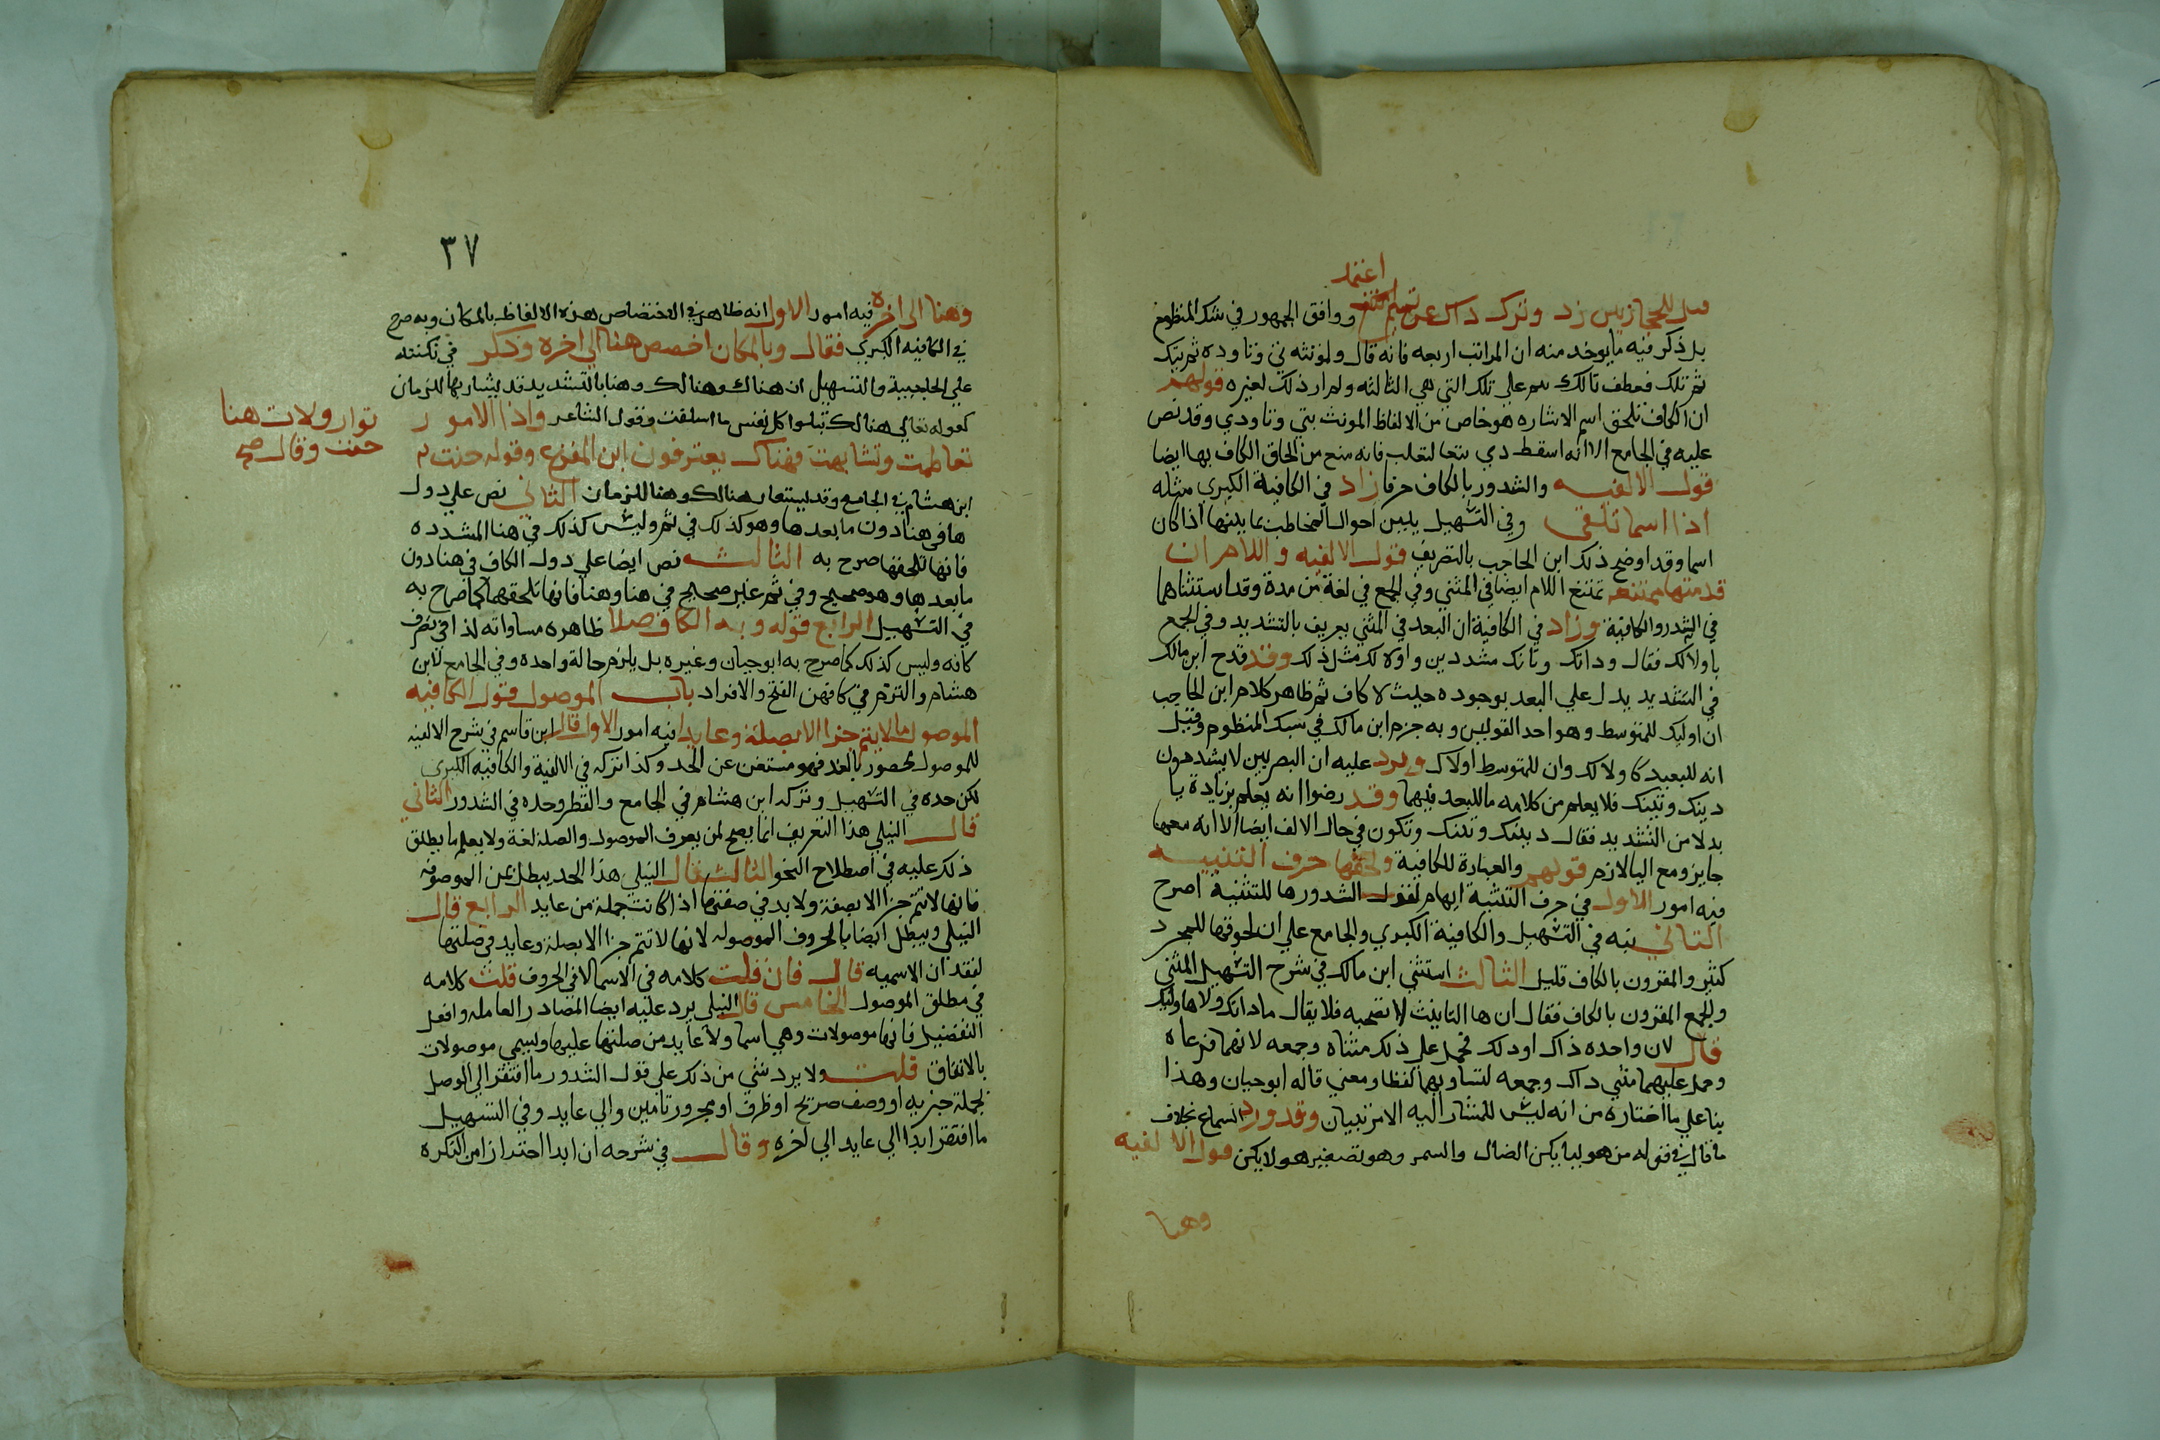 اعتمد
للحجازيين زد وترك ذاك عن تميم ووافق الجمهور في سبك المنظوم
بل ذكر فيه ما يوخد منه ان المراتب اربعه فانه قال ولمونثه تي وتا وده ثم تيك
ثم تلك فعطف تالك بثم علي تلك التي هي الثالثه ولم ار ذلك لغيره قولهم
ان الكاف تلحق اسم الاشاره هو خاص من الالفاظ المونث بتي وتا ودي وقد نص
عليه في الجامع الا انه اسقط دي تبعا لثعلب فانه منع من الحاق الكاف بها ايضا
قول الالفيه والشدور بالكاف حرفا زاد في الكافية الكبري مثله
اذا اسما تلغي وفي التسهيل يبين احوال المخاطب بما يبينها اذا كان
اسما وقد اوضح ذلك ابن الحاجب بالتصريف قول الالفيه واللام ان
قدمتها ممتنعه تمتنع اللام ايضا في المثني وفي الجمع في لغة من مدة وقد استثناهما
في الشدر والكافية وزاد في الكافية ان البعد في المثني بعريف بالتشديد وفي الجمع
باولالك فقال ودانك وتانك مشددين واولالك مثل ذلك وقد قدح ابن مالك
في التشديد يدل علي البعد بوجوده حيث لا كاف ثم ظاهر كلام ابن الحاجب
ان اوليك للمتوسط وهو احد القولين وبه جزم ابن مالك في سبك المنظوم وقيل
انه للبعيد كاولالك وان للمتوسط اولاك ويرد عليه ان البصريين لا يشددون
دينك وتينك فلا يعلم من كلامه ما للبعد فيهما وقد رضوا انه يعلم بزيادة يا
بدلا من التشديد فقال دينيك وتينيك وتكون في حال الالف ايضا الا انه معها
جايز ومع اليا لازم قولهم والعبارة للكافية ولحقها حرف التنبيه
فيه امور الاول في حرف التنبية ايهام لقول الشدور ها للتنبية اصرح
الثاني نبه في التسهيل والكافية الكبري والجامع علي ان لحوقها للمجرد
كثير والمقرون بالكاف قليل الثالث استثني ابن مالك في شرح التسهيل المثني
والجمع المقرون بالكاف فقال ان ها التانيث لا تصحبه فلا يقال هاذانك ولا هاوليك
قال لان واحده ذاك او ذلك فحمل علي ذلك مثناه وجمعه لانهما فرعاه
وحمل عليهما مثني ذاك وجمعه لتساويهما لفظا ومعني قاله ابو حيان وهذا
بنا علي ما اختاره من انه ليس للمشار اليه الا مرتبتان وقد ورد السماع بخلاف
ما قال في قوله من هوليايكن الضال والسمر وهو تصغير هولايكن قول الالفيه
وهنا
٣٧
وهنا الي اخره فيه امور الاول انه ظاهر في اختصاص هذه الالفاظ بالمكان وبه صرح
في الكافيه الكبري فقال وبالمكان اخصص هنا الي اخره وذكر في نكتته
علي الحاجبية والتسهيل ان هناك وهنالك وهنا بالتشديد قد يشار بها للزمان
كقوله تعالي هنالك تبلوا كل نفس ما اسلفت وقول الشاعر واذا الامور
تعاظمت وتشابهت فهناك يعترفون اين المفزع وقوله حنت
نوار ولات هنا
حنت وقال صح
ابن هشام في الجامع وقد يستعار هنالك وهنا للزمان الثاني نص علي دول
ها في هنا دون ما بعدها وهو كذلك في ثم وليس كذلك في هنا المشدده
فانها تلحقها صرح به الثالث نص ايضا علي دول الكاف في هنا دون
ما بعدها وهو صحيح وفي ثم غير صحيح في هنا وهنا فانها تلحقهما كما صرح به
في التسهيل الرابع قوله وبه الكاف صلا ظاهره مساواته لذا في تصرف
كافه وليس كذلك كما صرح به ابو حيان وغيره بل يلزم حالة واحده وفي الجامع لابن
هشام والتزم في كافهن الفتح والافراد باب الموصول قول الكافيه
الموصول ما لا يتم جزا الا بصلة وعايد فيه امور الاول قال ابن قاسم في شرح الالفيه
للموصول محصور بالعد فهو مستغن عن الحد وكذا تركه في الالفية والكافيه الكبري
لكن حده في التسهيل وتركه ابن هشام في الجامع والقطر وحده في الشدور الثاني
قال النيلي هذا التعريف انما يصح لمن يعرف الموصول والصلة لغة ولا يعلم ما يطلق
ذلك عليه في اصطلاح النحو الثالث قال النيلي هذا الحد يبطل بمن الموصوفه
فانها لا تتم جزا الا بصفة ولا بد في صفتها اذا كانت جملة من عايد الرابع قال
النيلي ويبطل ايضا بالحروف الموصوله لانها لا تتم جزا الا بصلة وعايد في صلتها
لفقدان الاسميه قال فان قلت كلامه في الاسما لا في الحروف قلت كلامه
في مطلق الموصول الخامس قال النيلي يرد عليه ايضا المصادر العامله وافعل
التفضيل فانها موصولات وهي اسما ولا عايد من صلتها عليها وليسمي موصولات
بالاتفاق قلت ولا يرد شي من ذلك علي قول الشدور ما افتقر الي الوصل
بجملة خبريه او وصف صريح او ظرف او مجرور تامين والي عايد وفي التسهيل
ما افتقر ابدا الي عايد الي اخره وقال في شرحه ان ابدا احتراز من النكره